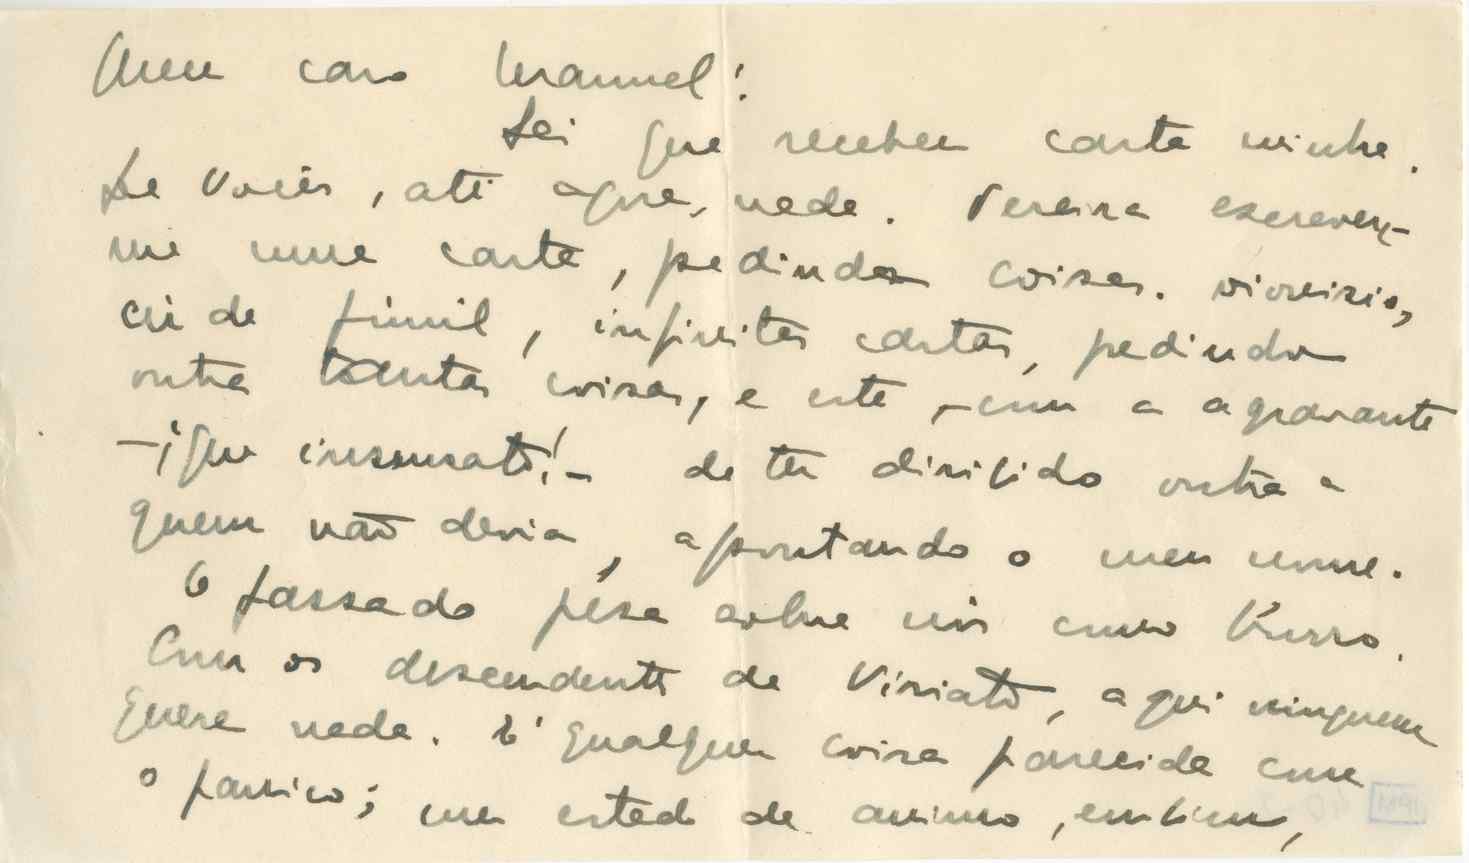 Meu caro Manuel!
Sei que recebeu carta minha.
De Vocês, até agora, nada. Pereira escreveu-
me uma carta, pedindo coisas.
cá de funil, infinitas cartas, pedindo
outra tantas coisas, e este, com a agravante
—¡que insensato!— de ter dirigido outra a
quem não devia, apontando o meu nome.
O passado pesa sobre nós como burro.
Com os descendentes de Viriato, aqui ninguem
quere nada. É qualquer coisa parecida com
o panico; um estado de animo, enfim,